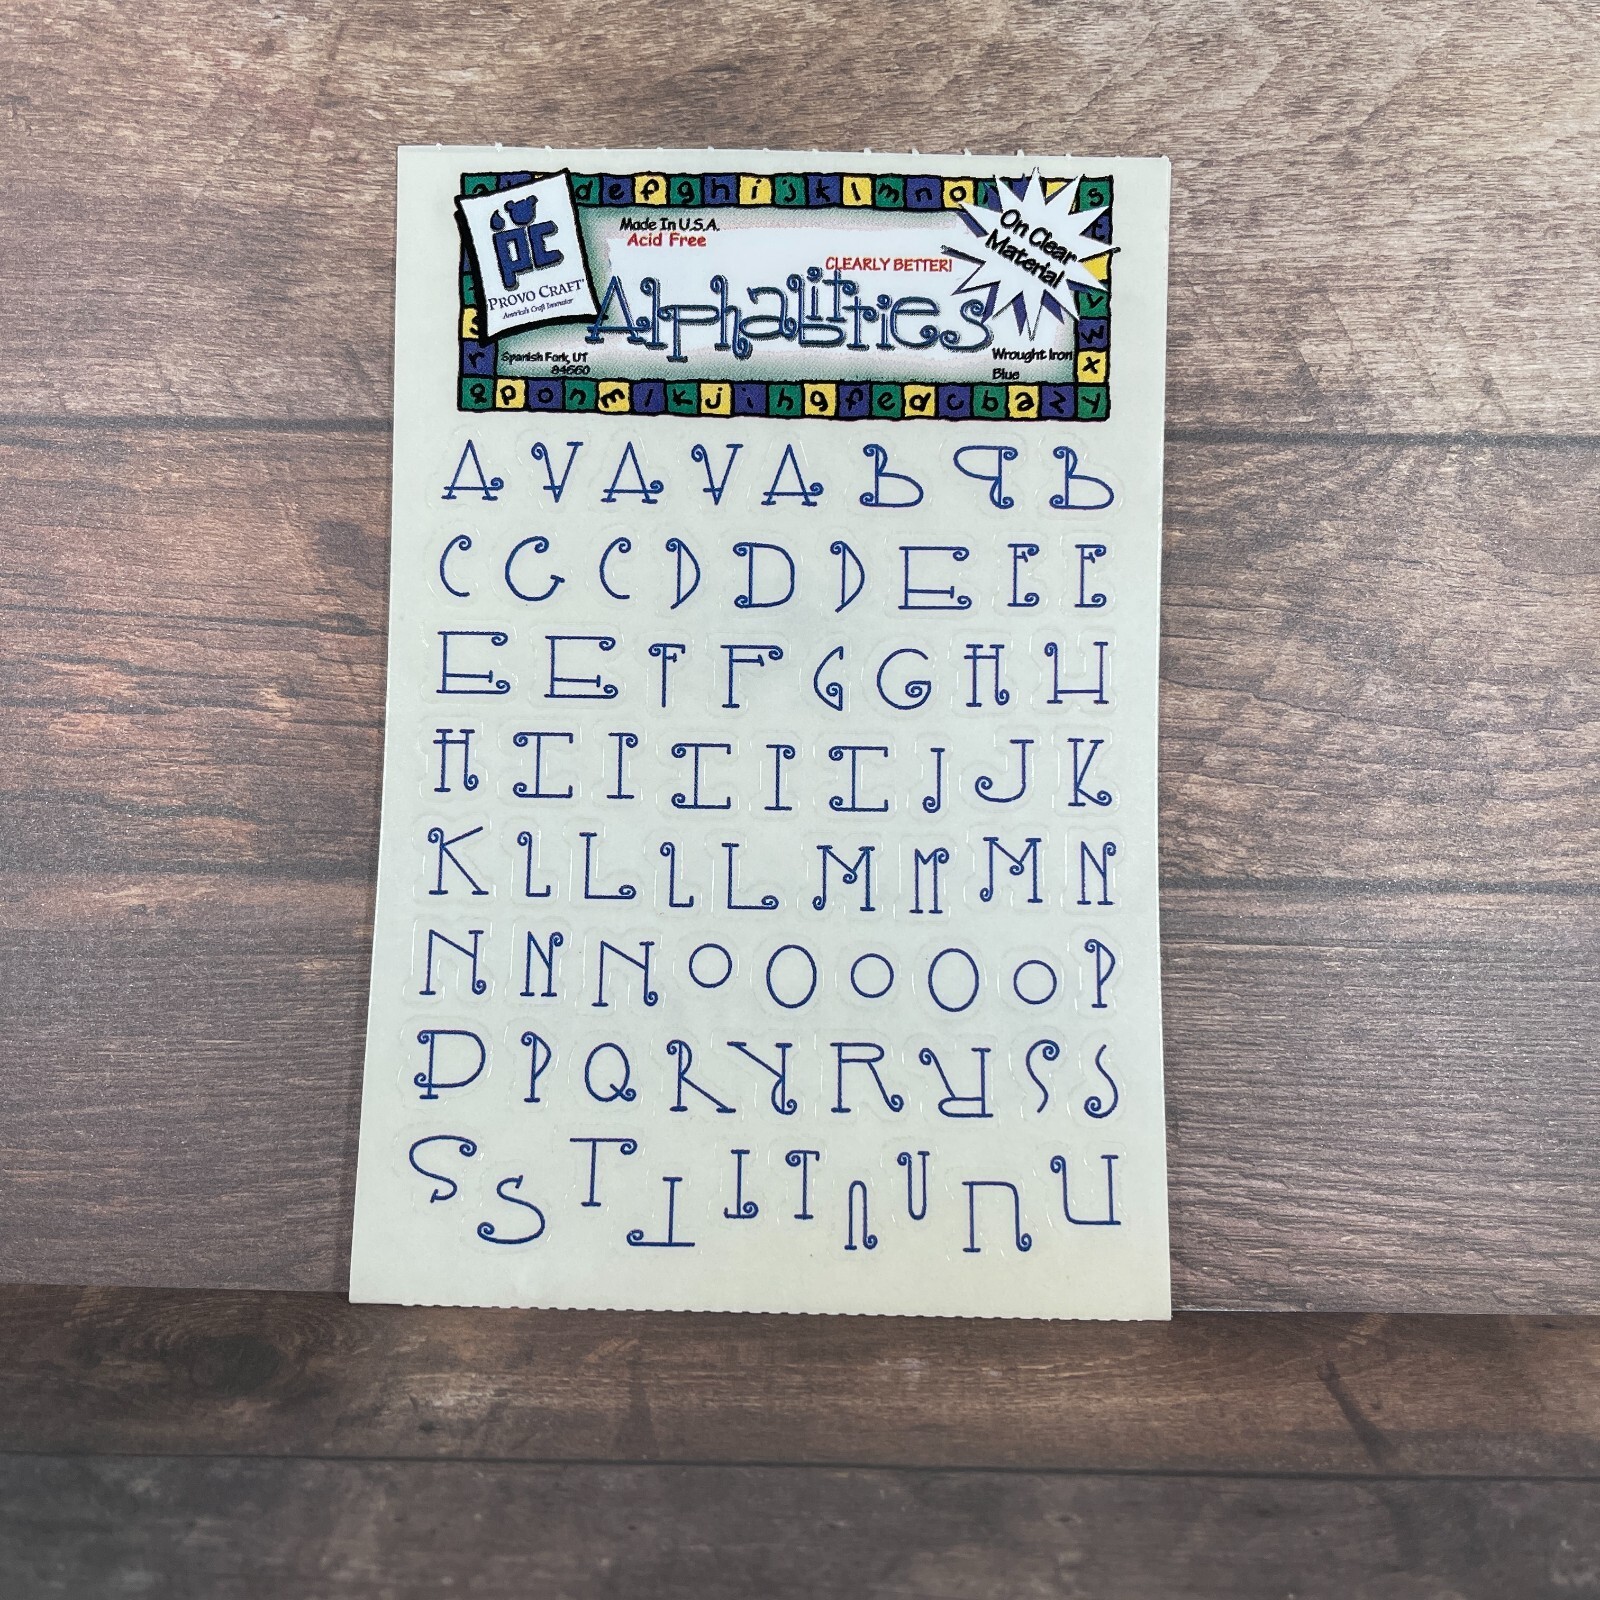 d e f g h i j k l m n o
s
pc
PROVO CRAFT
America's Craft Innovator
Made In U.S.A.
Acid Free
CLEARLY BETTER!
On Clear
Material
Alphabitties
Spanish Fork, UT
84660
Wrought Iron
Blue
v
w
x
r
q p o n m l k j i h g f e d c b a z y
A V A V A B B B
C G C D D D E E E
E E F F G G H H
H I I I I I J J K
K L L L L M M M N
N N N O O O O O P
P P Q R R R R S S
S S T T T T U U U U